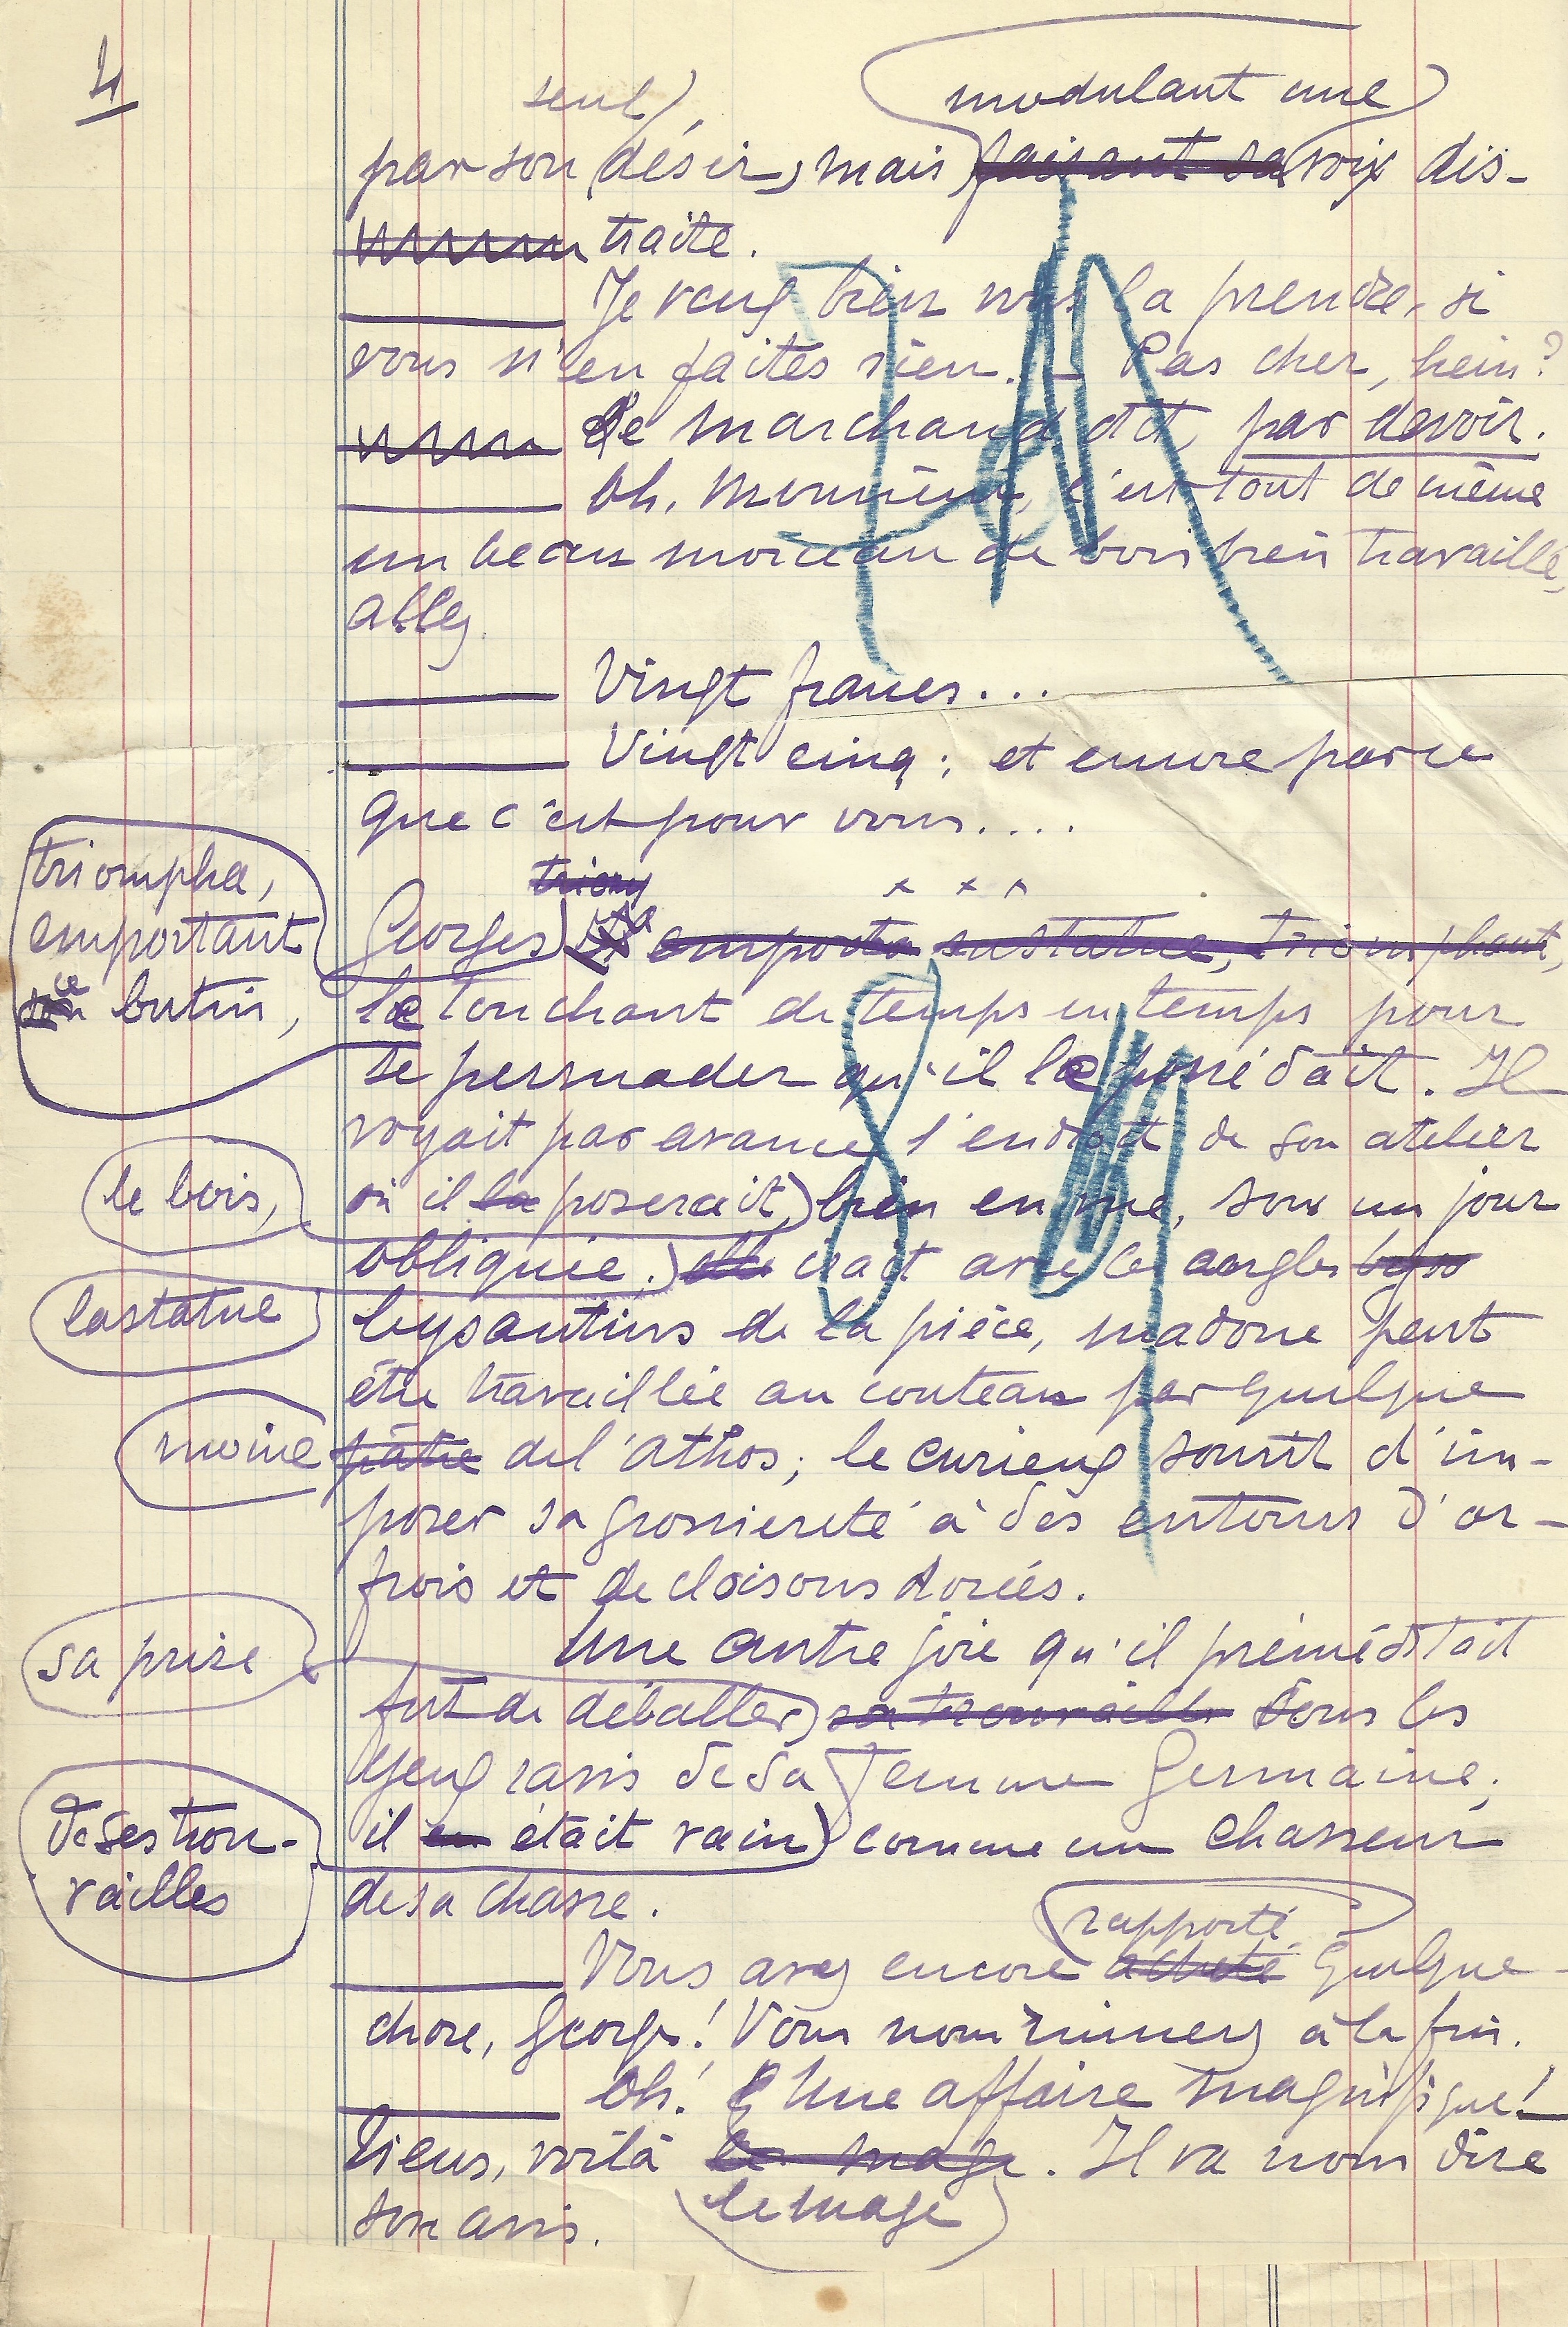 4
seul
modulant une
par son désir, mais faisant sa voix dis-
traite.
Je veux bien vous la prendre, si
vous n'en faites rien. — Pas cher, hein?
Le marchand dit, par devoir.
Oh, monsieur, c'est tout de même
un beau morceau de bois bien travaillé,
allez.
Vingt francs...
Vingt cinq; et encore parce
que c'est pour vous....
triompha,
emportant
ce butin,
triom
x x x
Georges emporta sa statue, triomphant,
le touchant de temps en temps pour
se persuader qu'il le possédait. Il
voyait par avance l'endroit de son atelier
le bois,
où il la poserait, bien en vue, sous un jour
obliqué. elle irait avec les angles byso
la statue
bysantins de la pièce, madone peut
être travaillée au couteau par quelque
moine
pâtre de l'Athos; le curieux sourit d'im-
poser sa grossiereté à des entours d'or-
frois et de cloisons dorées.
Une autre joie qu'il préméditait
sa prise
fut de déballer sa trouvaille sous les
yeux ravis de sa femme Germaine;
de ses trou-
vailles
il en était vain comme un chasseur
de sa chasse.
rapporté
Vous avez encore acheté quelque
chose, Georges! Vous nous ruinerez à la fin.
Oh! Une affaire magnifique!
Tiens, voilà le mage. Il va nous dire
le mage
son avis.